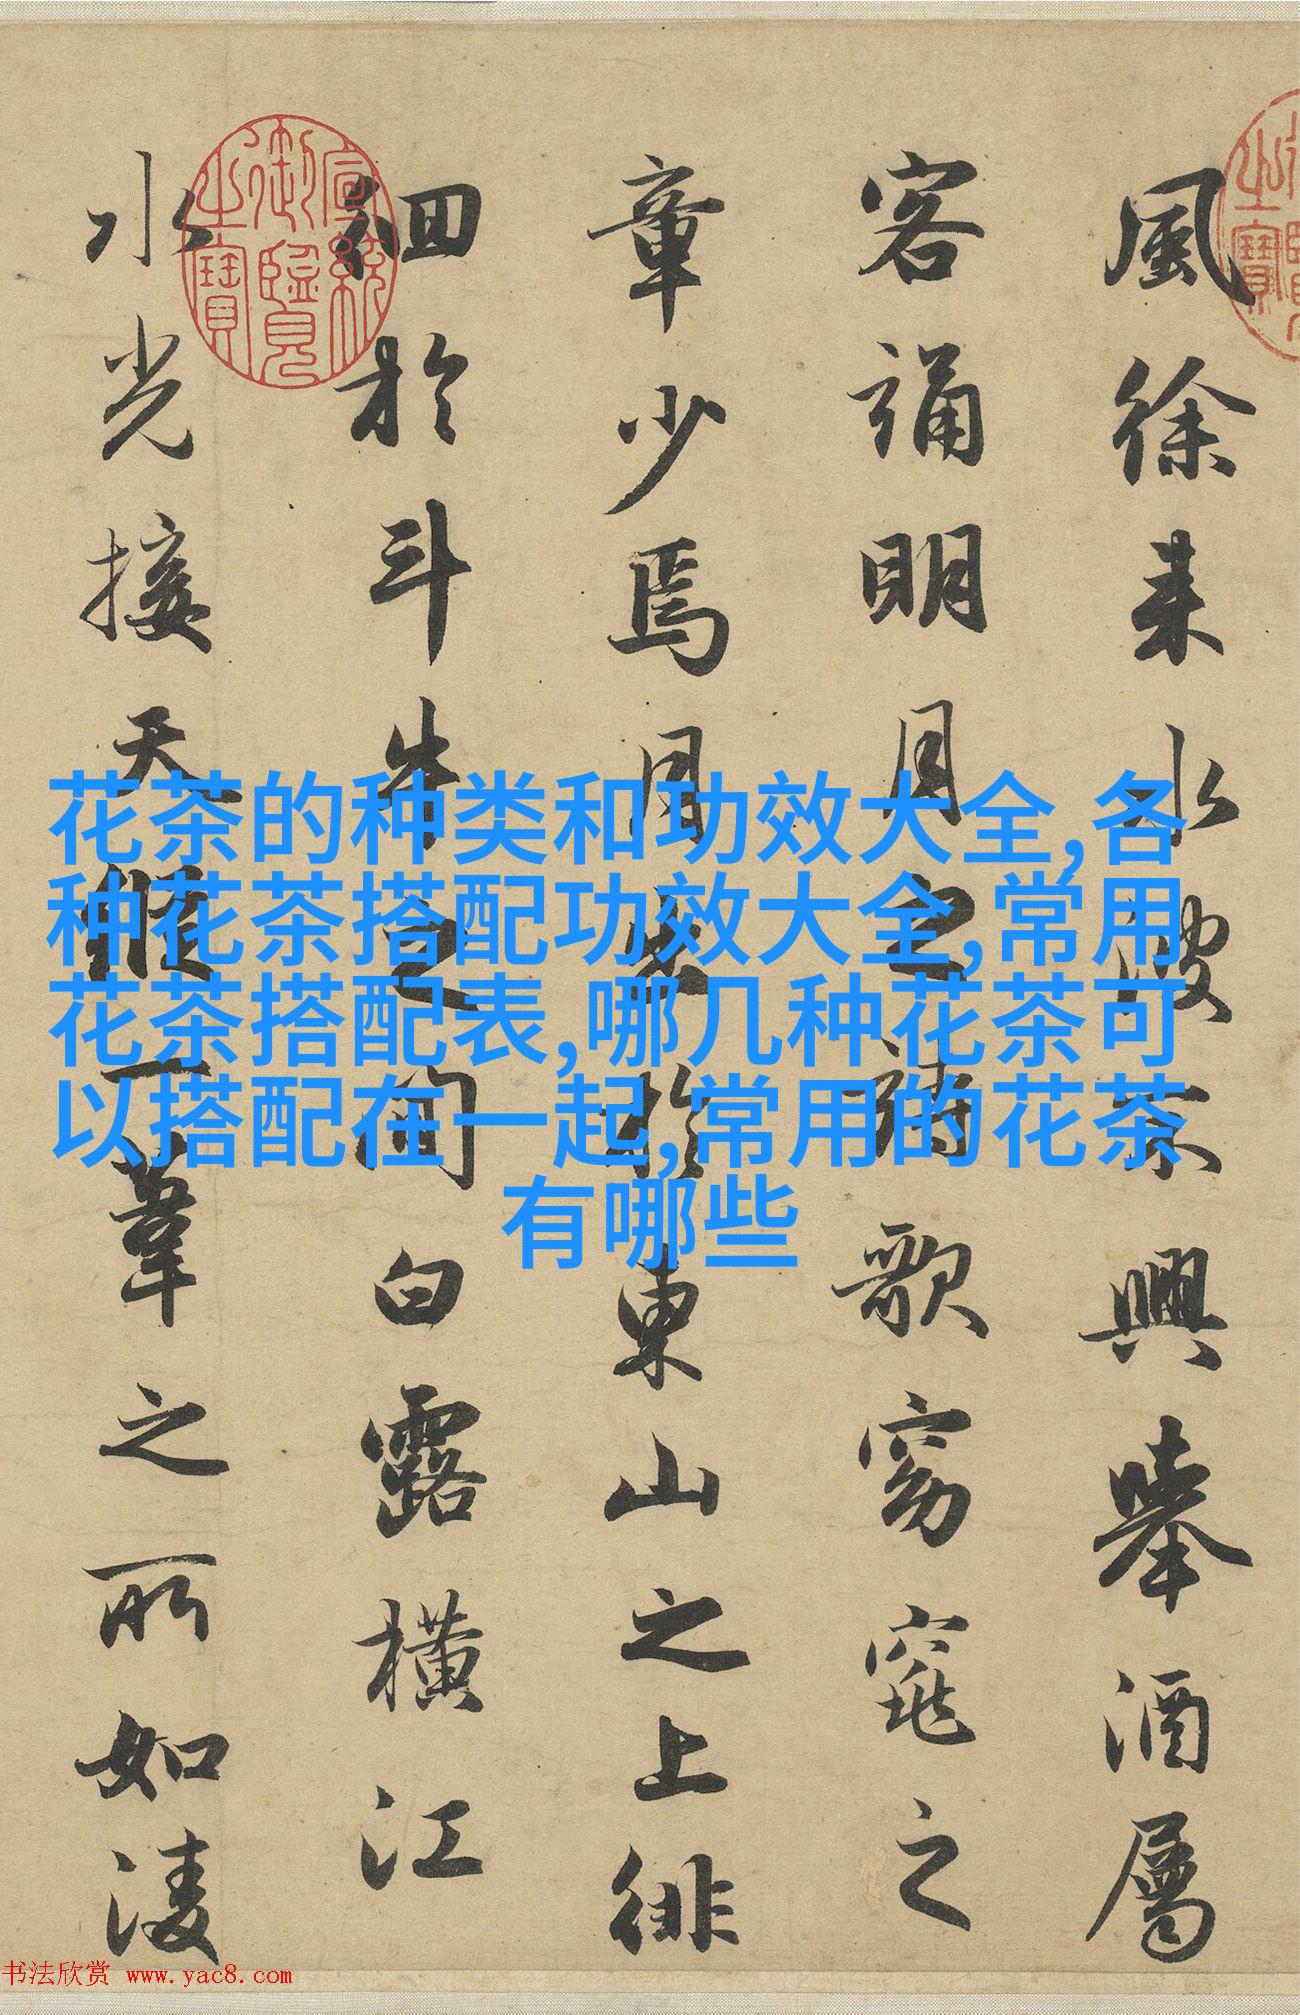 風徐来水波不興舉酒屬
客誦明月之詩歌窈窕之
章少焉月出於東山之上徘
徊於斗牛之間白露橫江
水光接天縱一葦之所如淩
宣統御覽之寶
花茶的种类和功效大全,各
种花茶搭配功效大全,常用
花茶搭配表,哪几种花茶可
以搭配在一起,常用的花茶
有哪些
书法欣赏 www.yac8.com